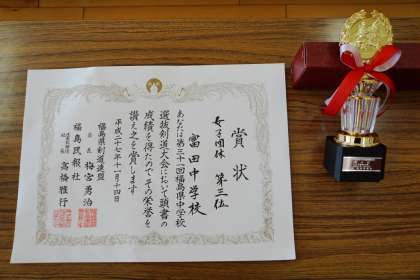 賞状
女子団体 第三位
富田中学校
あなたは第三十一回福島県中学校
選抜剣道大会において頭書の
成績を得たのでその栄誉を
讃え之を賞します
平成二十七年十一月十四日
福島県剣道連盟
会長 梅宮勇治
福島民報社
高橋雅行